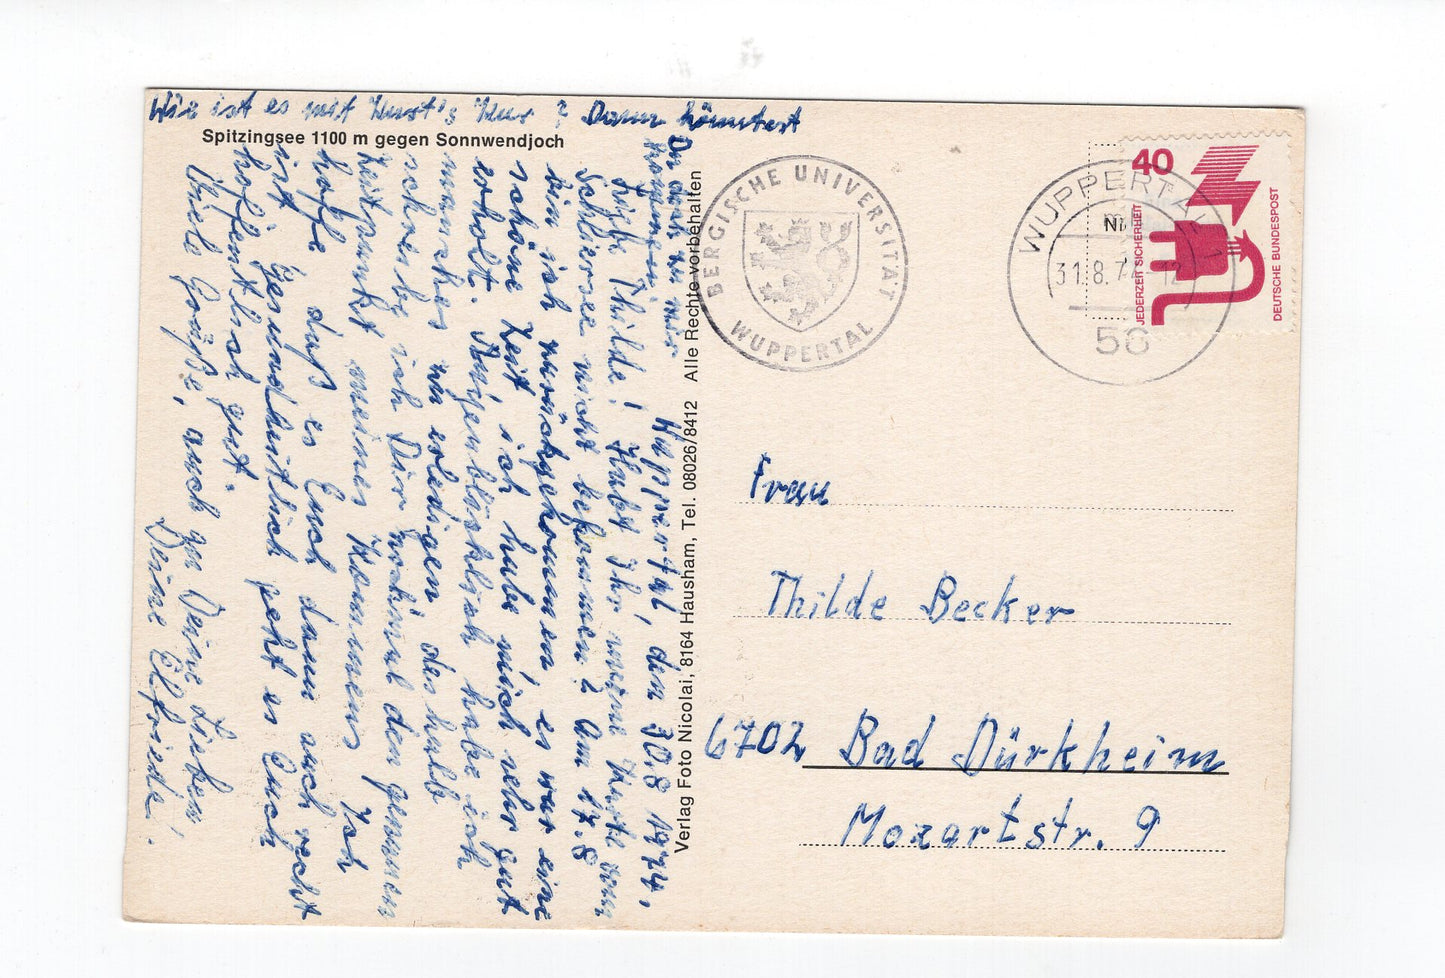 Wie ist es mit Kurt's Kur? Dann könntest
Du doch zu mir
kommen.
Spitzingsee 1100 m gegen Sonnwendjoch
Wuppertal, den 30.8.1974.
Liebe Thilde! Habt Ihr meine Karte vom
Schliersee nicht bekommen? Am 17.8
bin ich zurückgekommen, es war eine
schöne Zeit, ich habe mich sehr gut
erholt. Augenblicklich habe ich
manches zu erledigen, deshalb
schreibe ich Dir nochmal den genauen
Zeitpunkt meines Kommens. Ich
hoffe, daß es Euch dann auch recht
ist. Gesundheitlich geht es Euch
hoffentlich gut.
Viele Grüße, auch an Deine Lieben
Deine Elfriede!
Verlag Foto Nicolai, 8164 Hausham, Tel. 08026/8412 Alle Rechte vorbehalten
BERGISCHE UNIVERSITÄT
WUPPERTAL
WUPPERTAL 1
31.8.74 12
56
40
JEDERZEIT SICHERHEIT
DEUTSCHE BUNDESPOST
Frau
Thilde Becker
6702 Bad Dürkheim
Mozartstr. 9